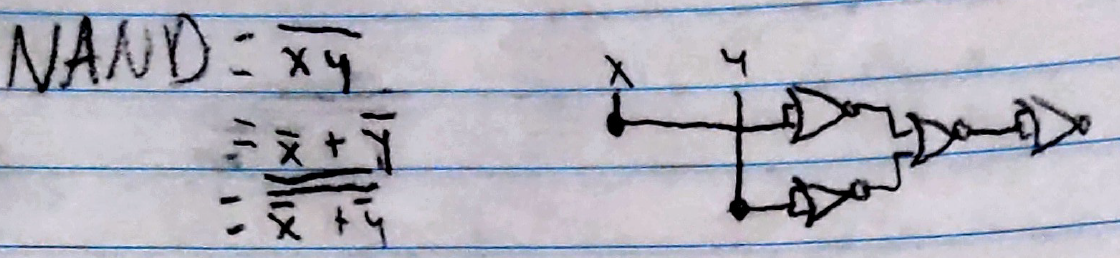 NAND = \overline{xy}
X Y
= \overline{x} + \overline{y}
= \overline{\overline{\overline{x} + \overline{y}}}